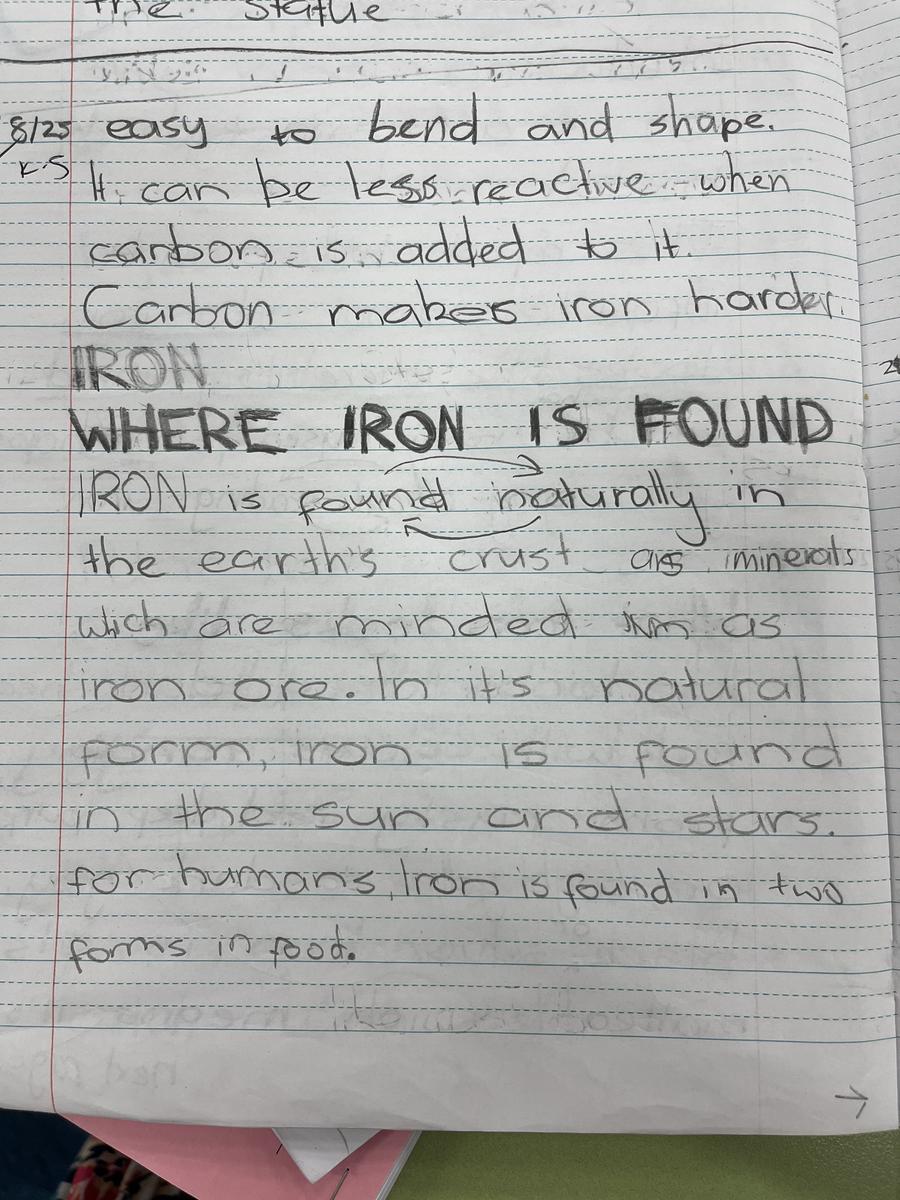 The statue
8/25 easy to bend and shape.
K.S
It can be less reactive when
carbon is added to it.
Carbon makes iron harder.
IRON
WHERE IRON IS FOUND
IRON is found naturally in
the earth's crust as minerals
wich are minded as
iron ore. In it's natural
form, iron is found
in the sun and stars.
for humans, Iron is found in two
forms in food.
→